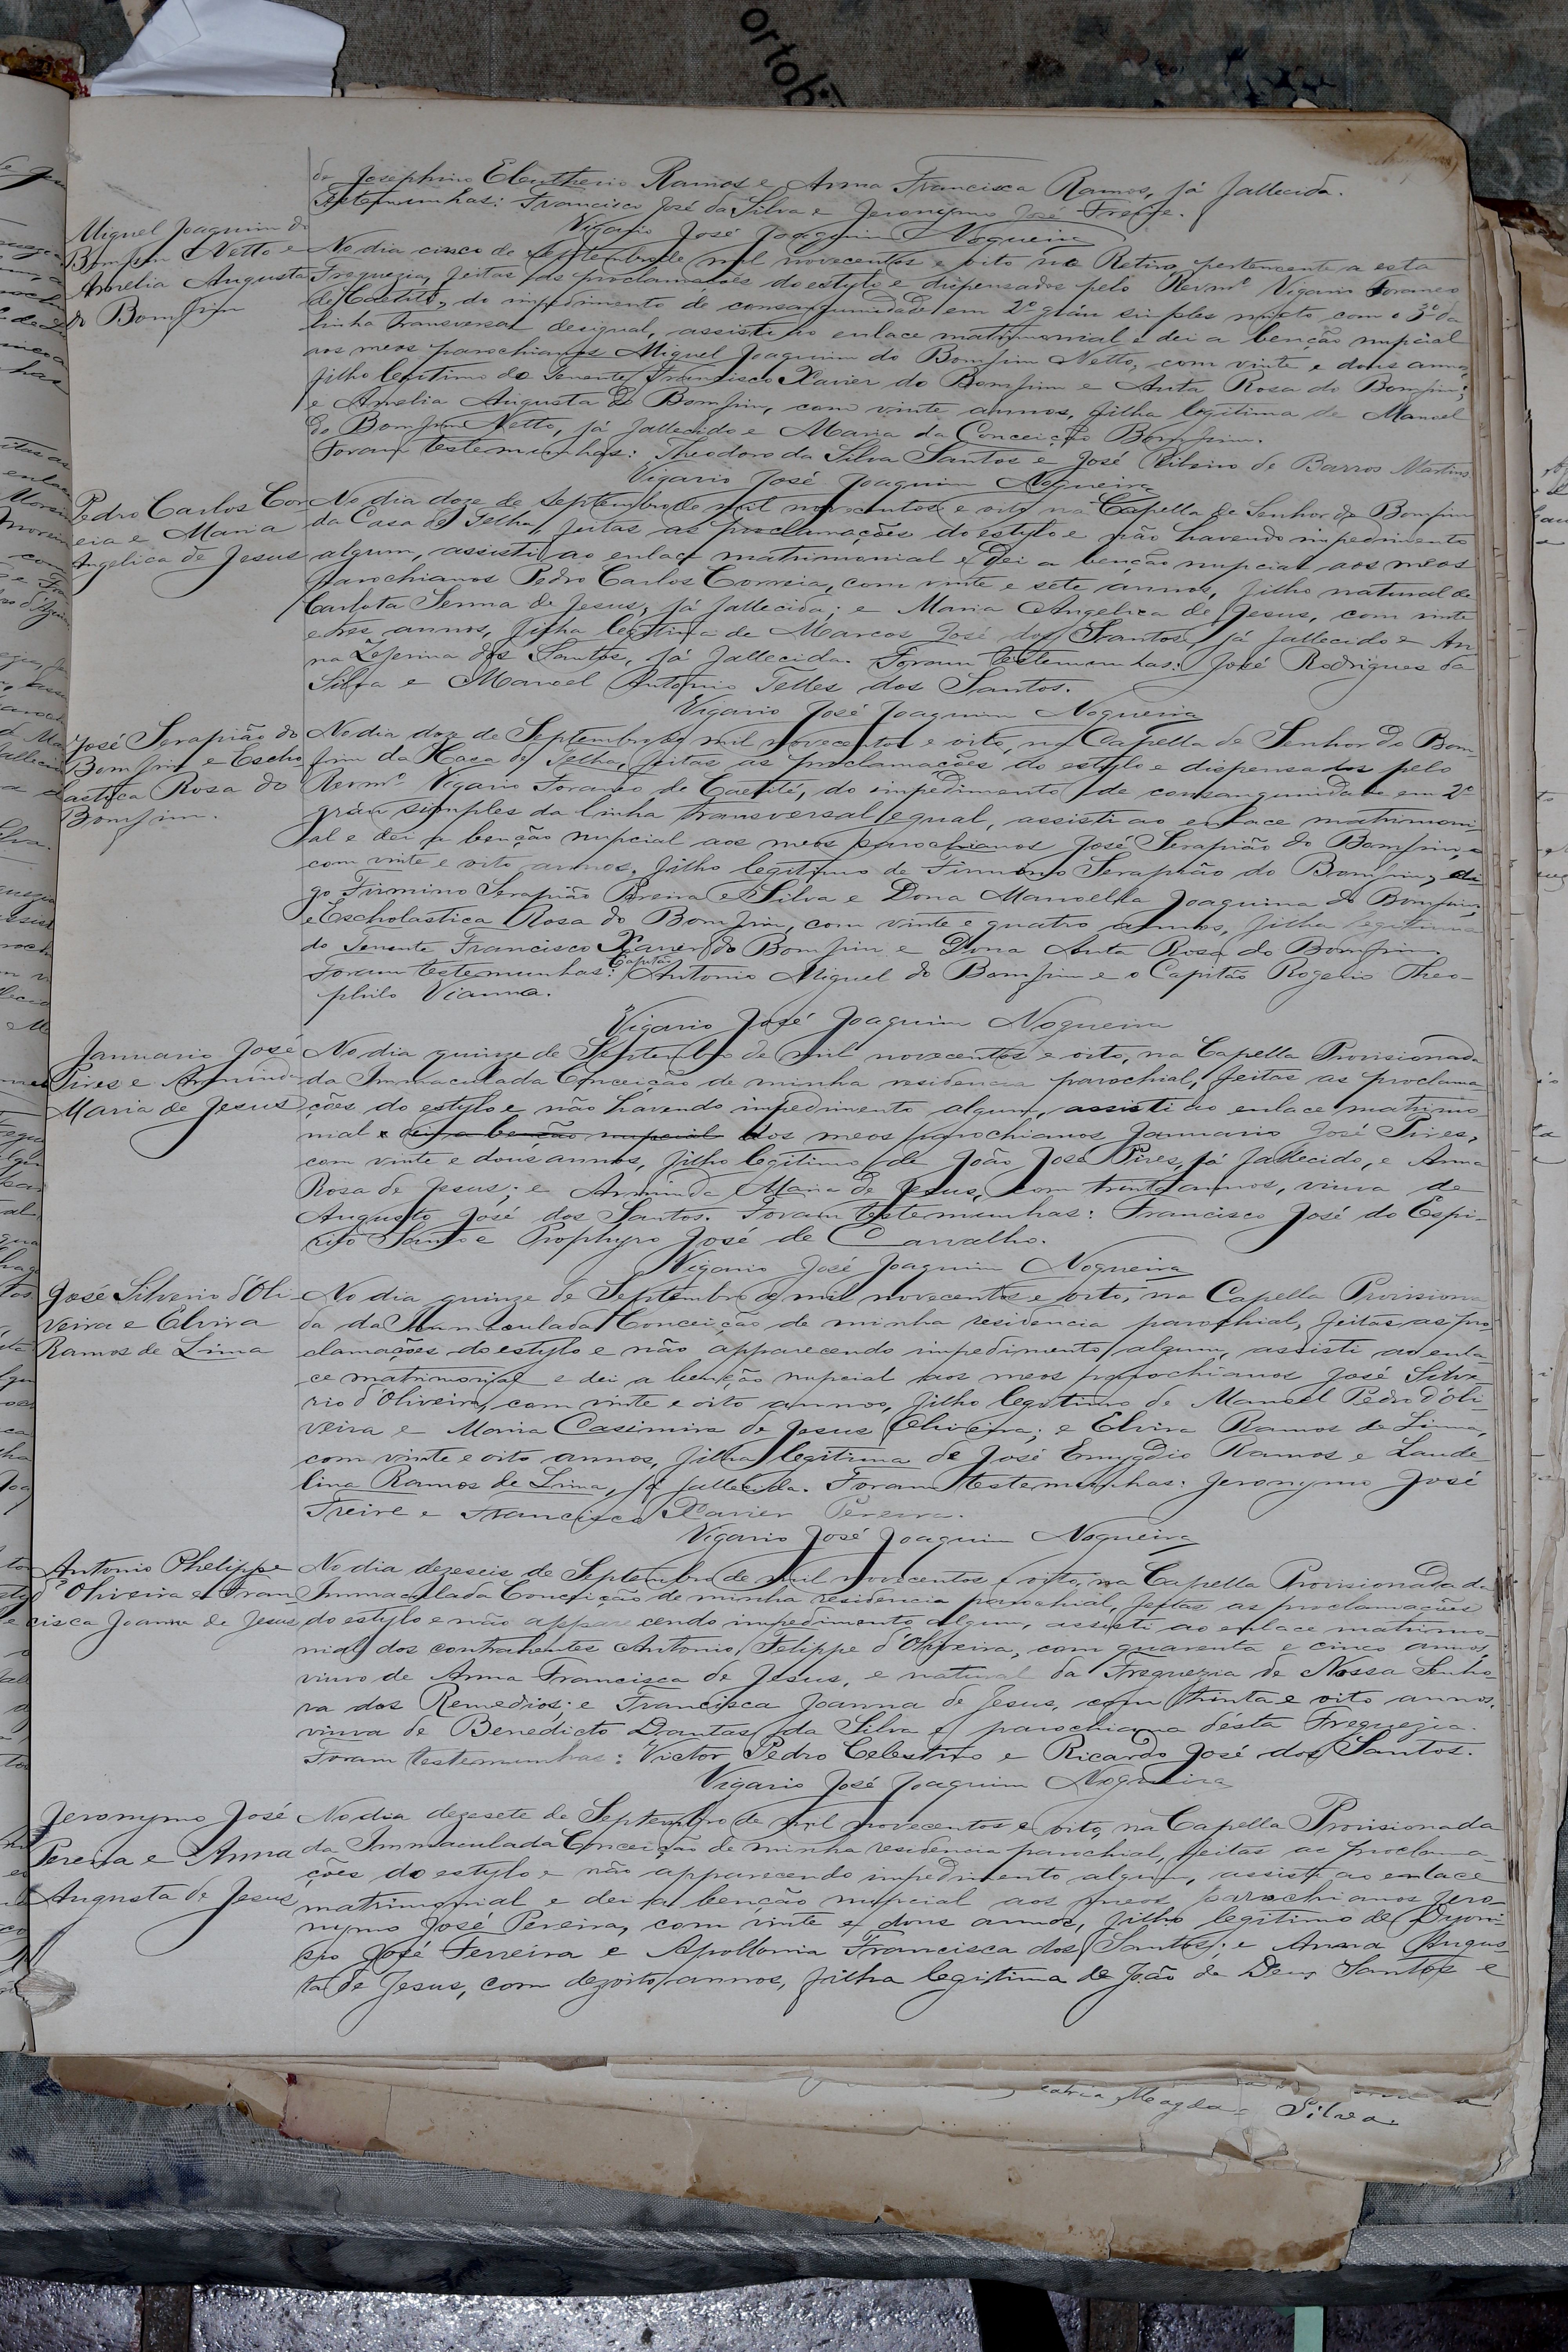 de Josephino Eleutherio Ramos e Anna Francisca Ramos, já fallecida.
Testemunhas: Francisco José da Silva e Jeronymo José Freire.
Vigario José Joaquim Nogueira
Miguel Joaquim do
Bomfim Netto e
Amelia Augusta
do Bomfim
No dia cinco de Septembro de mil novecentos e oito no Retiro, pertencente a esta
Freguezia, feitas as proclamações do estylo e dispensados pelo Revmº Vigario Foraneo
de Caetité, do impedimento de consanguinidade em 2º gráu simples mixto com o 3º da
linha transversal desigual, assisti ao enlace matrimonial e dei a benção nupcial
aos meos parochianos Miguel Joaquim do Bomfim Netto, com vinte e dous annos,
filho legitimo do Tenente Francisco Xavier do Bomfim e Anta Rosa do Bomfim;
e Amelia Augusta do Bomfim, com vinte annos, filha legitima de Manoel
do Bomfim Netto, já fallecido e Maria da Conceição Bomfim.
Foram testemunhas: Theodoro da Silva Santos e José Ribeiro de Barros Martins
Vigario José Joaquim Nogueira
Pedro Carlos Cor
eia e Maria
Angelica de Jesus
No dia doze de Septembro de mil novecentos e oito na Capella de Senhor do Bomfim
da Casa de Telha, feitas as proclamações do estylo e não havendo impedimento
algum, assisti ao enlace matrimonial e dei a benção nupcial aos meos
parochianos Pedro Carlos Correia, com vinte e sete annos, filho natural de
Carlota Senna de Jesus, já fallecida; e Maria Angelica de Jesus, com vinte
e tres annos, filha legitima de Marcos José dos Santos, já fallecido e An
na Zeferina dos Santos, já fallecida. Foram testemunhas: José Rodrigues da
Silva e Manoel Antonio Telles dos Santos.
Vigario José Joaquim Nogueira
José Serapião do
Bomfim e Escho
lastica Rosa do
Bomfim.
No dia doze de Septembro de mil novecentos e oito, na Capella de Senhor do Bom-
fim da Casa de Telha, feitas as proclamações do estylo e dispensados pelo
Revmº Vigario Foraneo de Caetité, do impedimento de consanguinidade em 2º
gráu simples da linha transversal egual, assisti ao enlace matrimoni-
al e dei a benção nupcial aos meos parochianos José Serapião do Bomfim,
com vinte e oito annos, filho legitimo de Firmino Serapião do Bomfim, di
go Firmino Serapião Pereira e Silva e Dona Manoella Joaquina do Bomfim;
e Escholastica Rosa do Bomfim, com vinte e quatro annos, filha legitima
do Tenente Francisco Xavier do Bomfim e Dona Anta Rosa do Bomfim.
Foram testemunhas: Capitão Antonio Miguel do Bomfim e o Capitão Rogerio Theo-
philo Vianna.
Vigario José Joaquim Nogueira
Januario José
Pires e Arminda
Maria de Jesus
No dia quinze de Septembro de mil novecentos e oito, na Capella Provisionada
da Immaculada Conceição de minha residencia parochial, feitas as proclama
ções do estylo e não havendo impedimento algum, assisti ao enlace matrimo
nial e dei a benção nupcial dos meos parochianos Januario José Pires,
com vinte e dous annos, filho legitimo de João José Pires, já fallecido, e Anna
Rosa de Jesus; e Arminda Maria de Jesus, com trinta annos, viuva de
Augusto José dos Santos. Foram testemunhas: Francisco José do Espi-
rito Santo e Prophyro José de Carvalho.
Vigario José Joaquim Nogueira
José Silverio d'Oli-
veira e Elvira
Ramos de Lima
No dia quinze de Septembro de mil novecentos e oito, na Capella Provisiona
da da Immaculada Conceição de minha residencia parochial, feitas as pro
clamações do estylo e não apparecendo impedimento algum, assisti ao enla-
ce matrimonial e dei a benção nupcial aos meos parochianos José Silve
rio d'Oliveira, com vinte e oito annos, filho legitimo de Manoel Pedro d'Oli-
veira e Maria Casimira de Jesus Oliveira; e Elvira Ramos de Lima,
com vinte e oito annos, filha legitima de José Emygdio Ramos e Laude
lina Ramos de Lima, já fallecida. Foram testemunhas: Jeronymo José
Freire e Francisco Xavier Pereira.
Vigario José Joaquim Nogueira
Antonio Phelippe
d'Oliveira e Fran
cisca Joanna de Jesus
No dia dezeseis de Septembro de mil novecentos e oito, na Capella Provisionada da
Immaculada Conceição de minha residencia parochial, feitas as proclamações
do estylo e não apparecendo impedimento algum, assisti ao enlace matrimo-
nial dos contrahentes Antonio Felippe d'Oliveira, com quarenta e cinco annos,
viuvo de Anna Francisca de Jesus, e natural da Freguezia de Nossa Senho-
ra dos Remedios; e Francisca Joanna de Jesus, com trinta e oito annos,
viuva de Benedicto Dantas da Silva e parochiana désta Freguezia.
Foram testemunhas: Victor Pedro Celestino e Ricardo José dos Santos.
Vigario José Joaquim Nogueira
Jeronymo José
Pereira e Anna
Augusta de Jesus
No dia dezesete de Septembro de mil novecentos e oito, na Capella Provisionada
da Immaculada Conceição de minha residencia parochial, feitas as proclama-
ções do estylo e não apparecendo impedimento algum, assisti ao enlace
matrimonial e dei a benção nupcial aos meos parochianos Jero-
nymo José Pereira, com vinte e dous annos, filho legitimo de Dyoni-
sio José Ferreira e Apollonia Francisca dos Santos; e Anna Augus
ta de Jesus, com dezoito annos, filha legitima de João de Deus Santos e
Silva.